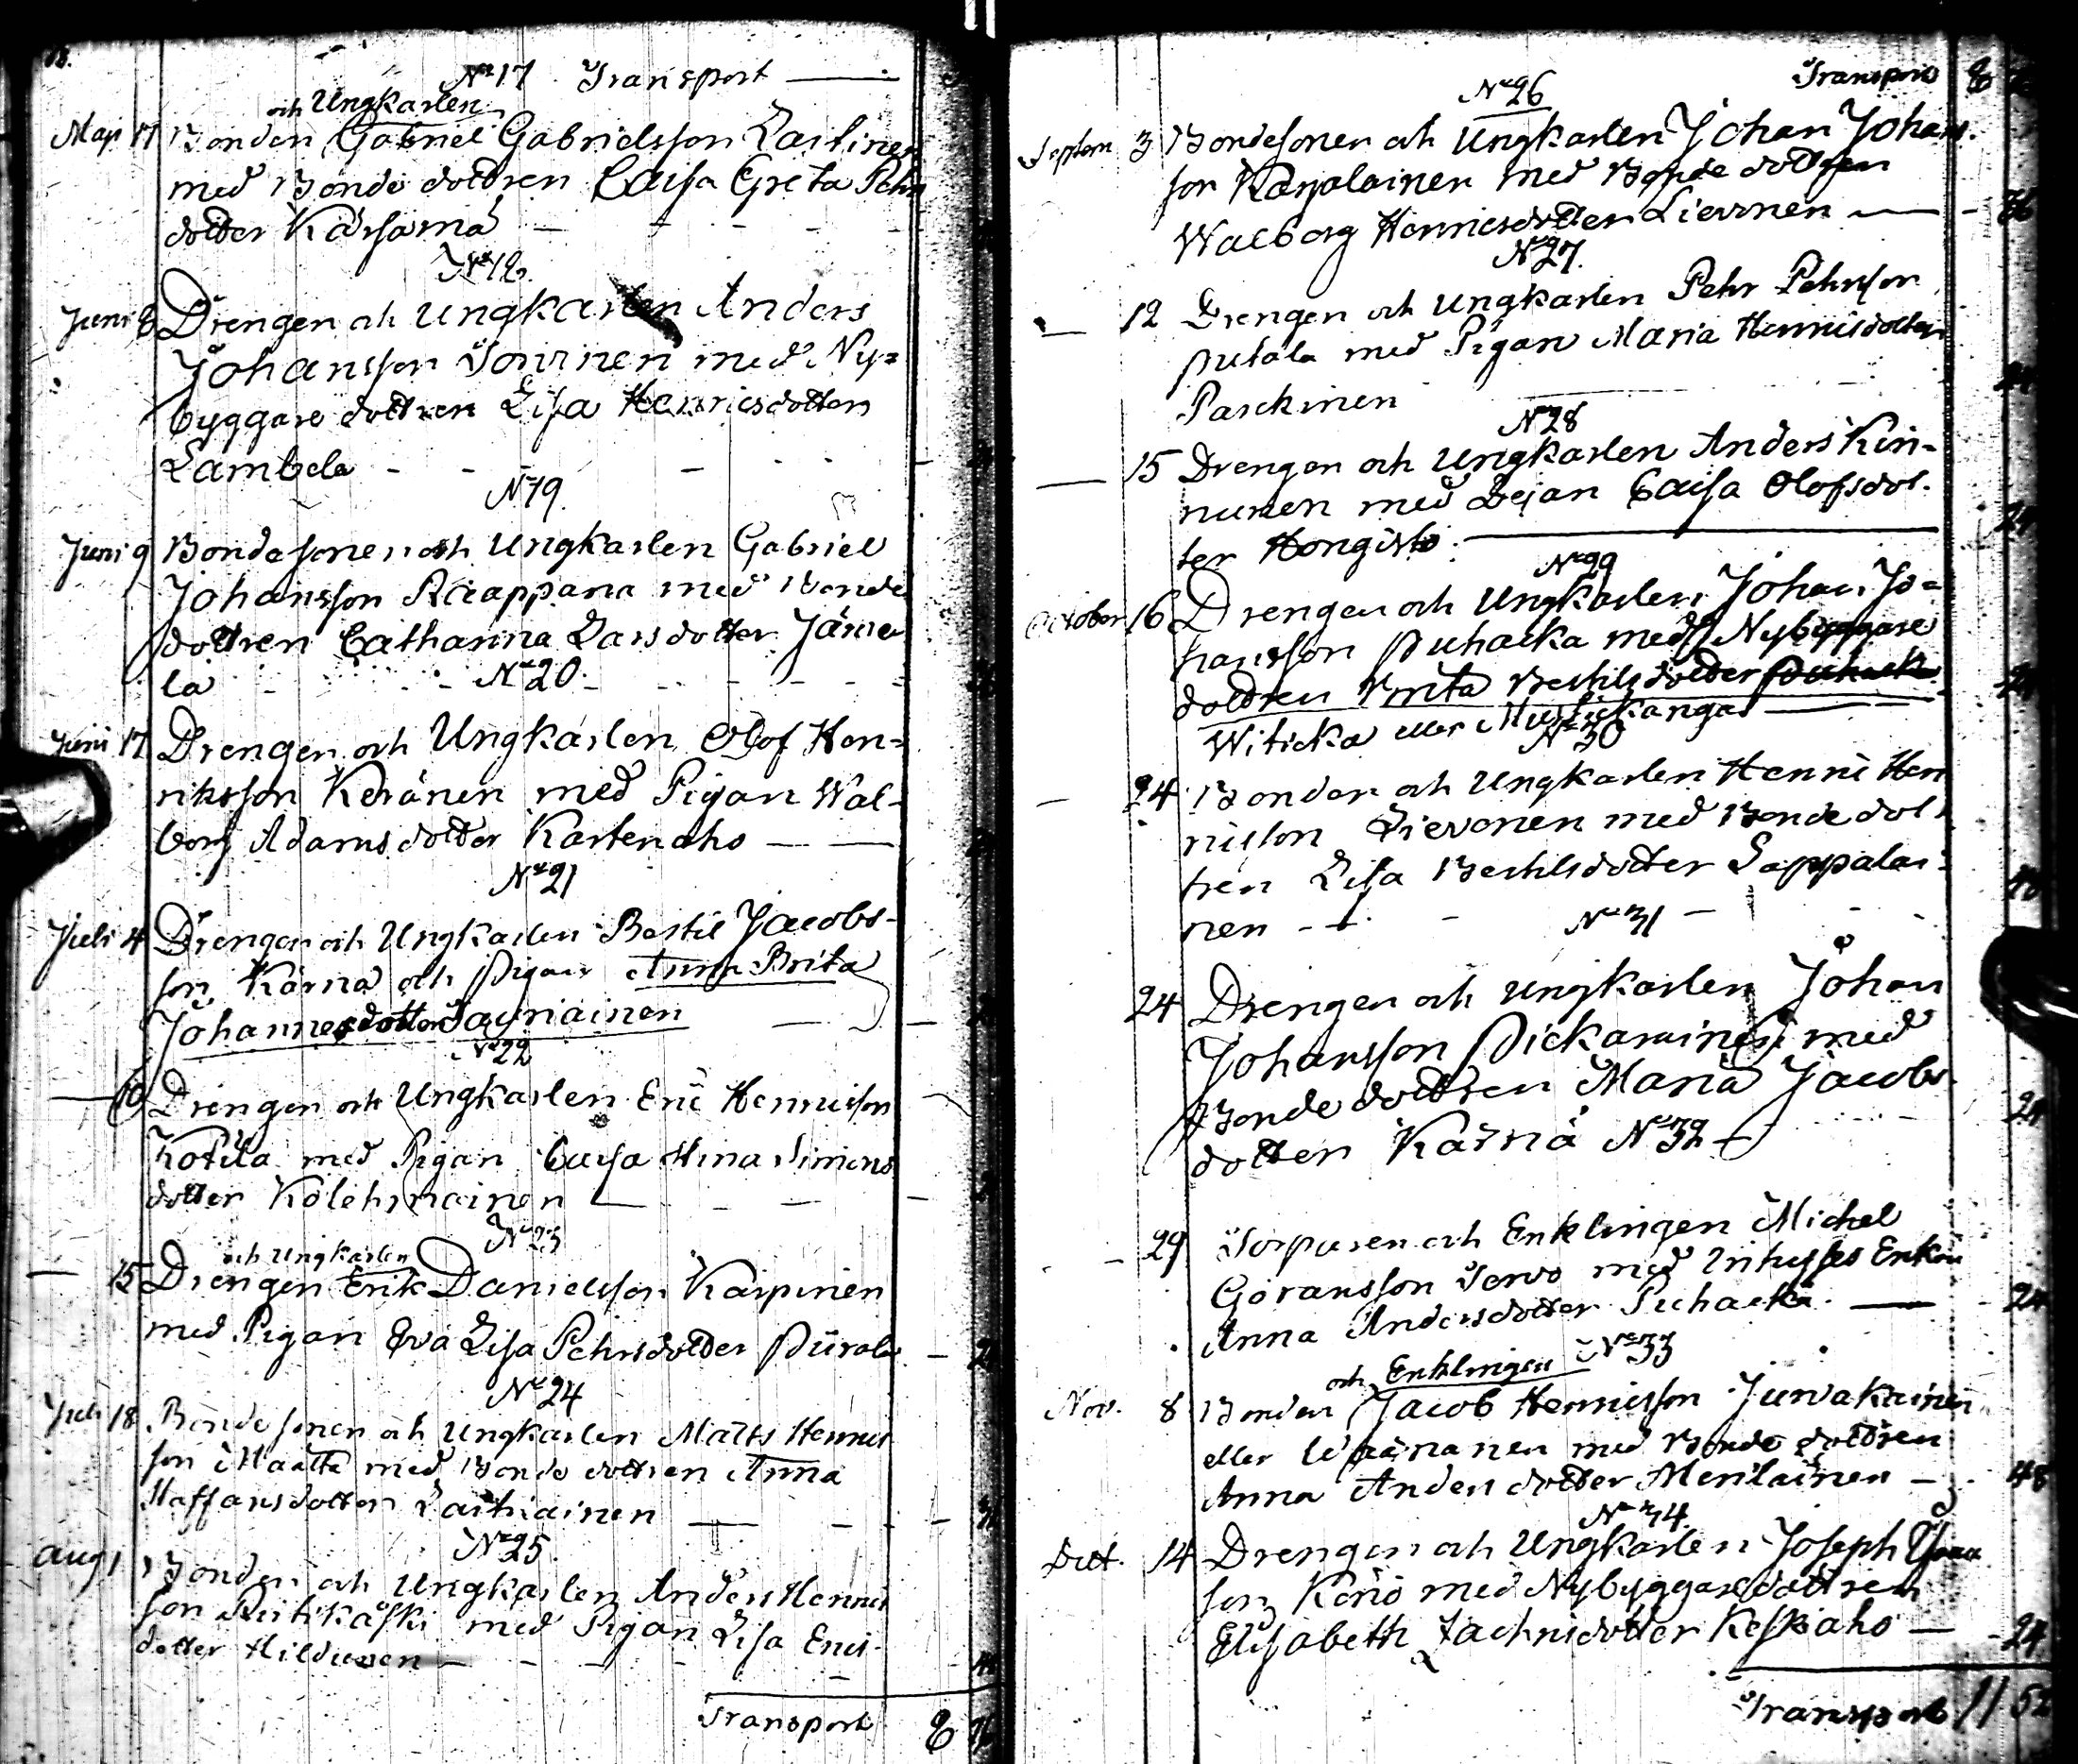 18.
No 17 Transport
och Ungkarlen
Maji 17 Bonden Gabriel Gabrielsson Lartinen
med Bonde dottren Caisa Greta Pehrs
dotter Kärsämä
No 18.
Juni 8 Drengen och Ungkarlen Anders
Johansson Torvinen med Ny=
byggare dottren Lisa Henricsdotter
Lambela
No 19.
Juni 9 Bondesonen och Ungkarlen Gabriel
Johansson Räappana med Bonde
dottren Catharina Larsdotter Järve
lä
No 20.
Juni 17 Drengen och Ungkarlen Olof Hen=
riksson Keränen med Pigan Wal-
borg Adamsdotter Kartenaho
No 21
Juli 4 Drengen och Ungkarlen Bertil Jacobs-
son Kärnä och Pigan Anna Brita
Johannesdotter Tauriainen
No 22
— 10 Drengen och Ungkarlen Eric Henricsson
Kotila med Pigan Caisa Stina Simons
dotter Kolehmainen
No 23
och Ungkarlen
— 15 Drengen Erik Danielsson Karpinen
med Pigan Eva Lisa Pehrsdotter Piirola
No 24
Juli 18 Bondesonen och Ungkarlen Matts Henrics
son Määttä med Bonde dottren Anna
Staffansdotter Lartiainen
No 25.
Aug 1 Bonden och Ungkarlen Anders Henrics
son Ristikaski med Pigan Lisa Erics-
dotter Hildunen
Transport 8
Transport 8
No 26
Septem 3 Bondesonen och Ungkarlen Johan Johans-
son Karjalainen med Bonde dottren
Walborg Henricsdotter Lievonen
No 27.
— 12 Drengen och Ungkarlen Pehr Pehrsson
Putala med Pigan Maria Henricsdotter
Parckinen
No 28
— 15 Drengen och Ungkarlen Anders Kin-
nunen med Pejan Caisa Olofsdot-
ter Hongisto. 24
No 29
October 16 Drengen och Ungkarlen Johan Jo=
hansson Puhacka med Nybyggare
dottren Brita Bertilsdotter Puhacka 24
Witicka eller Mustickangas
No 30
— 24 Bonden och Ungkarlen Henric Hen
ricsson Lievonen med Bonde dot
tren Lisa Bertilsdotter Sappalai-
nen
No 31
24 Drengen och Ungkarlen Johan
Johansson Pickarainen med
Bonde dottren Maria Jacobs- 24
dotter Kärnä No 32
- 29 Torparen och Enklingen Michel
Göransson Tervo med Inhyses Enkan
Anna Andersdotter Puhacka 24
No 33
och Enklingen
Nov. 8 Bonden Jacob Henricsson Juvakainen
eller Wäänänen med Bonde dottren
Anna Andersdotter Meriläinen 48
No 34
Dec. 14 Drengen och Ungkarlen Joseph
son Kerio med Nybyggare dottren
Elisabeth Zachrisdotter Keskiaho 24
Transport 11 52